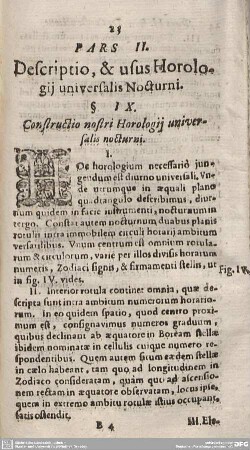 23
PARS II.
Descriptio, & usus Horolo-
gij universalis Nocturni.
§ IX.
Constructio nostri Horologij univer-
salis nocturni.
I.
HOc horologium necessariò jun-
gendum est diurno universali, Un-
de utrumque in æquali plano
quadrangulo describimus, diur-
num quidem in facie instrumenti, nocturnum in
tergo. Constat autem nocturnum duabus planis
rotulis intra immobilem circuli horarij ambitum
versatilibus. Unum centrum est omnium rotula-
rum & circulorum, variè per illos divisis horarum
numeris, Zodiaci signis, & firmamenti stellis, ut
in fig. IV. vides.
Fig. IV.
II. Interior rotula continet omnia, quæ de-
scripta sunt intra ambitum numerorum horario-
rum. In eo quidem spatio, quod centro proxi-
mum est, consignavimus numeros graduum,
quibus declinant ab æquatore in Boream stellæ
ibidem nominatæ in cuilibet cuique numero re-
spondentibus. Quem autem situm eædem stellæ
in cælo habeant, tam quo ad longitudinem in
Zodiaco consideratam, quàm quo ad ascensio-
nem rectam in æquatore observatam, locus ipse,
quem in extremo ambitu rotulæ istius occupant
satis ostendit.
B 4
III. Ele-